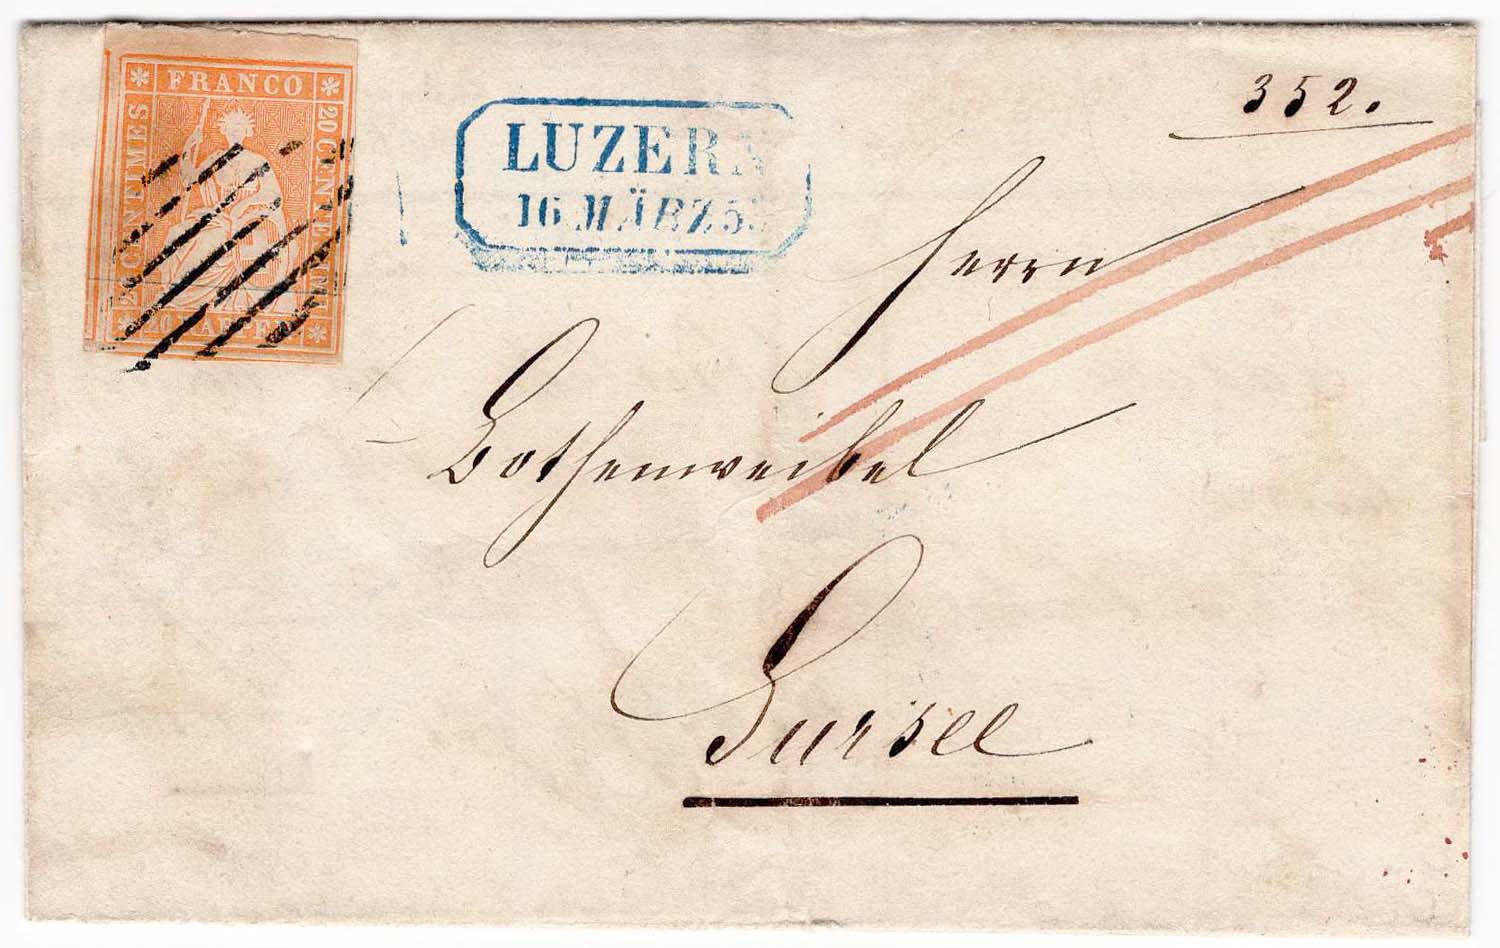 FRANCO
20 CENTIMES
20 CENTESIMI
20 RAPPEN
LUZERN
16 MÄRZ 5
352.
Herrn
Bothenweibel
Sursee